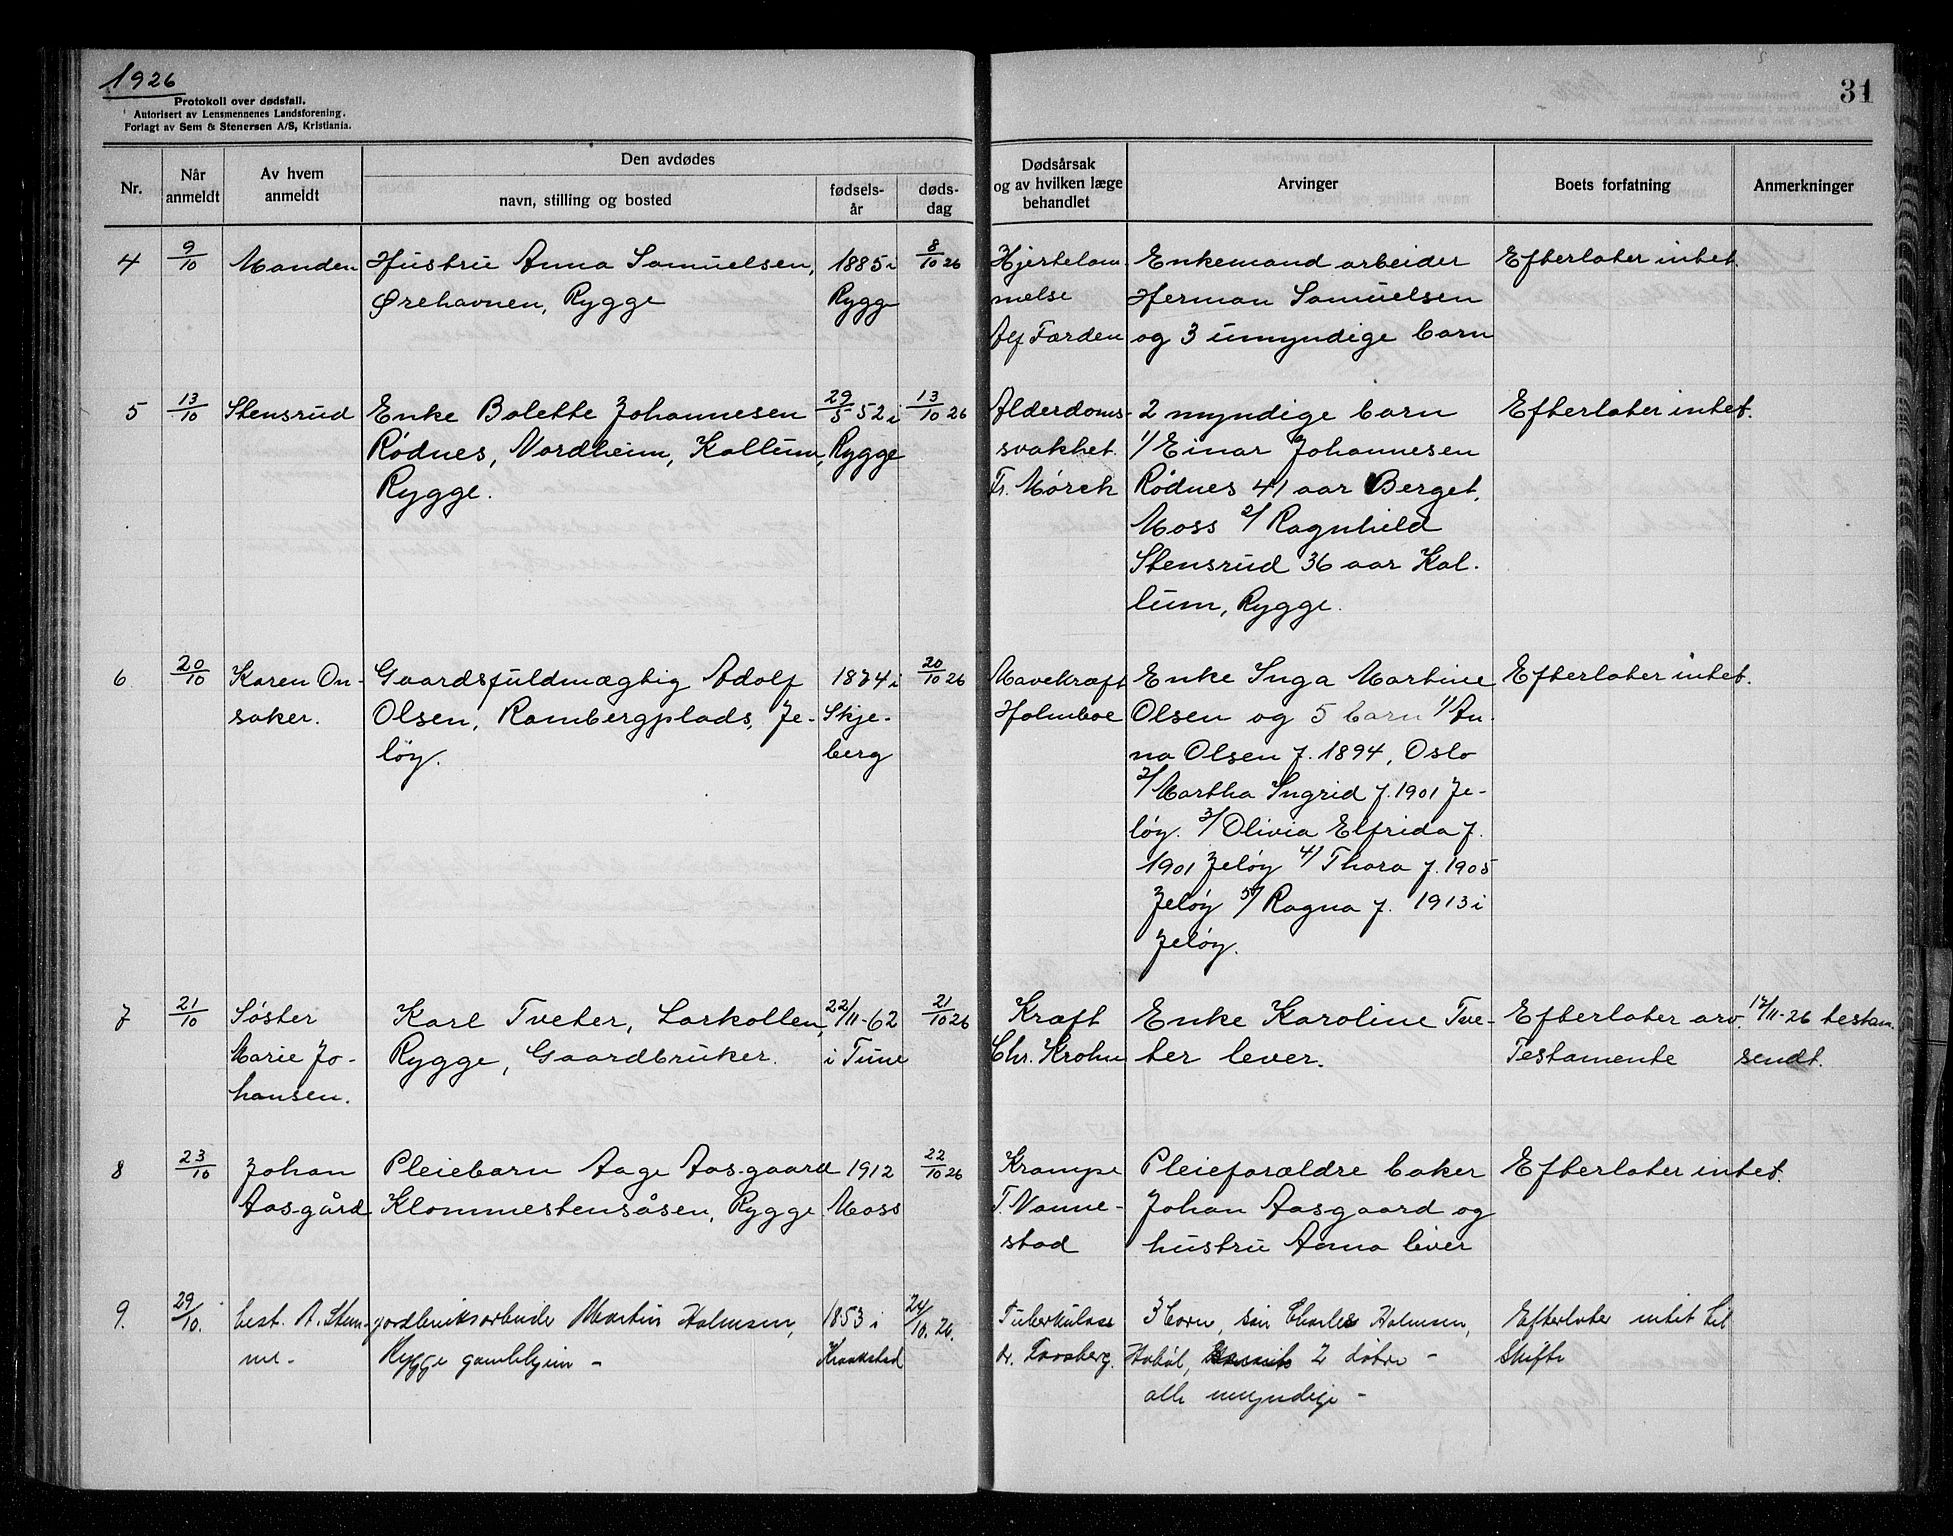 1926
Protokoll over dødsfall.
Autorisert av Lensmennenes Landsforening.
Forlagt av Sem & Stenersen A/S, Kristiania.
31
Nr.
Når
anmeldt
Av hvem
anmeldt
Den avdødes
navn, stilling og bosted
fødsels-
år
døds-
dag
Dødsårsak
og av hvilken læge
behandlet
Arvinger
Boets forfatning
Anmerkninger
4
9/10
Manden
Hustru Anna Samuelsen,
Ørehavnen, Rygge
1885 i
Rygge
8/10 26
Hjertelam
melse
Alf Færden
Enkemand arbeider
Herman Samuelsen
og 3 umyndige barn
Efterlater intet.
5
13/10
Stensrud
Enke Bolette Johannesen
Rødnes, Nordheim, Kallum,
Rygge.
29/5 52 i
Rygge
13/10 26
Alderdoms-
svakhet.
Fr. Mørch
2 myndige barn
1/ Einar Johannesen
Rødnes 41 aar Berget,
Moss 2/ Ragnhild
Stensrud 36 aar Kal-
lum, Rygge.
Efterlater intet.
6
20/10
Karen On-
saker.
Gaardsfuldmægtig Adolf
Olsen, Rambergplads, Je-
løy.
1874 i
Skje-
berg
20/10 26
Mavekræft
Holmboe
Enke Inga Martine
Olsen og 5 barn 1/ An-
na Olsen f. 1894, Oslo
2/ Martha Ingrid f. 1901 Je-
løy. 3/ Olivia Elfrida f.
1901 Jeløy 4/ Thora f. 1905
Jeløy 5/ Ragna f. 1913 i
Jeløy.
Efterlater intet.
7
21/10
Søster
Marie Jo-
hansen.
Karl Tveter, Larkollen,
Rygge, Gaardbruker.
22/11-62
i Tune
21/10 26
Kræft
Chr. Krohn
Enke Karoline Tve-
ter lever.
Efterlater arv.
Testamente
17/11-26 testam.
sendt.
8
23/10
Johan
Aasgård
Pleiebarn Aage Aasgaard
Klommestensåsen, Rygge
1912
Moss
22/10 26
Krampe
T. Vanne-
stad
Pleieforældre baker
Johan Aasgaard og
hustru Anna lever
Efterlater intet.
9.
29/10.
best. A. Stem-
me.
jordbruksarbeider Martin Halmsen,
Rygge gamlehjem -
1853 i
Kraakstad
24/10. 26.
Tuberkulose
dr.
3 barn, søn Charles Halmsen,
Hobøl, 2 døtre -
alle myndige -
Efterlater intet til
Skifte